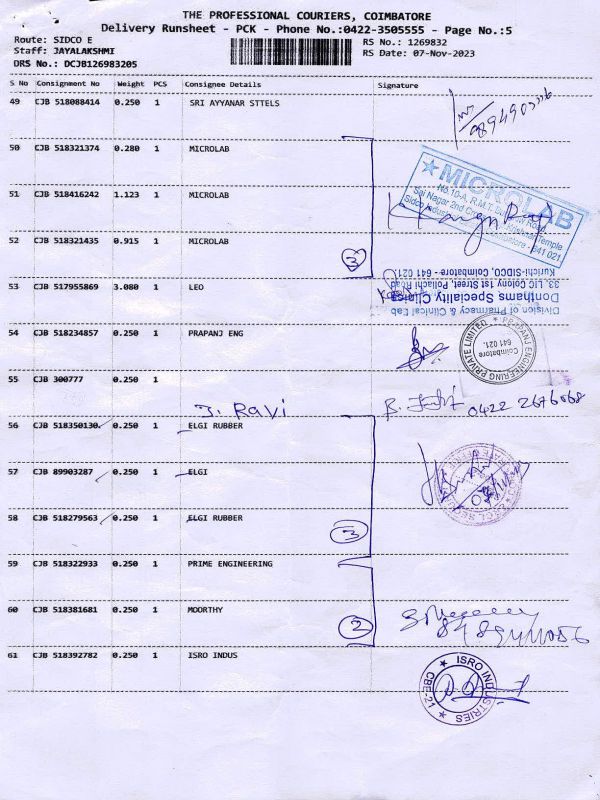 THE PROFESSIONAL COURIERS, COIMBATORE
Delivery Runsheet - PCK - Phone No.:0422-3505555 - Page No.:5
Route: SIDCO E
RS No.: 1269832
Staff: JAYALAKSHMI
RS Date: 07-Nov-2023
DRS No.: DCJB126983205
S No Consignment No Weight PCS Consignee Details Signature
49 CJB 518088414 0.250 1 SRI AYYANAR STTELS
50 CJB 518321374 0.280 1 MICROLAB
MICROLAB
No.10-A, R.M.T.
Sai Nagar 2nd Krishna Temple
Sidco Coimbatore - 641 021
51 CJB 518416242 1.123 1 MICROLAB
52 CJB 518321435 0.915 1 MICROLAB
3
Kurichi-SIDCO, Coimbatore - 641 021.
33, LIC Colony 1st Street, Pollachi Road
Donthams Speciality Clinic
Division of Pharmacy & Clinical Lab
53 CJB 517955869 3.080 1 LEO
54 CJB 518234857 0.250 1 PRAPANJ ENG
PRAPANJ ENGINEERING PRIVATE LIMITED
Coimbatore
641 021.
55 CJB 300777 0.250 1
J. Ravi
0422 2676068
56 CJB 518350130 0.250 1 ELGI RUBBER
57 CJB 89903287 0.250 1 ELGI
58 CJB 518279563 0.250 1 ELGI RUBBER
3
59 CJB 518322933 0.250 1 PRIME ENGINEERING
60 CJB 518381681 0.250 1 MOORTHY
2
61 CJB 518392782 0.250 1 ISRO INDUS
ISRO INDUSTRIES
CBE-21